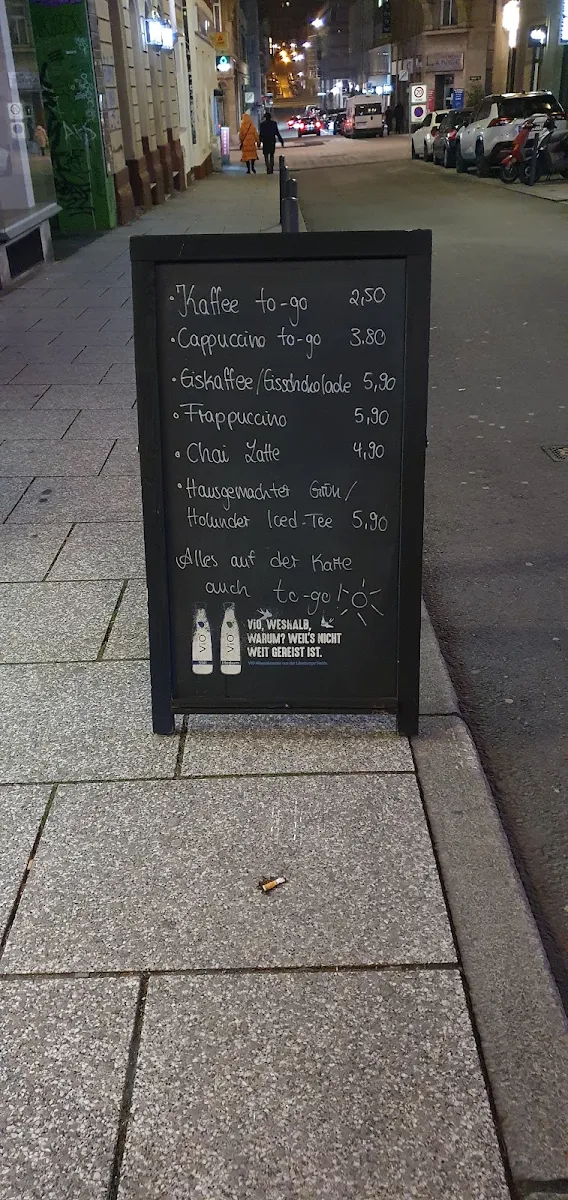 • Kaffee to-go 2,50
• Cappuccino to-go 3.80
• Eiskaffee/Eisschokolade 5,90
• Frappuccino 5,90
• Chai Latte 4,90
• Hausgemachter Grün/
Holunder Iced-Tee 5,90
Alles auf der Karte
auch to-go!
ViO ViO
ViO, WESHALB,
WARUM? WEIL'S NICHT
WEIT GEREIST IST.